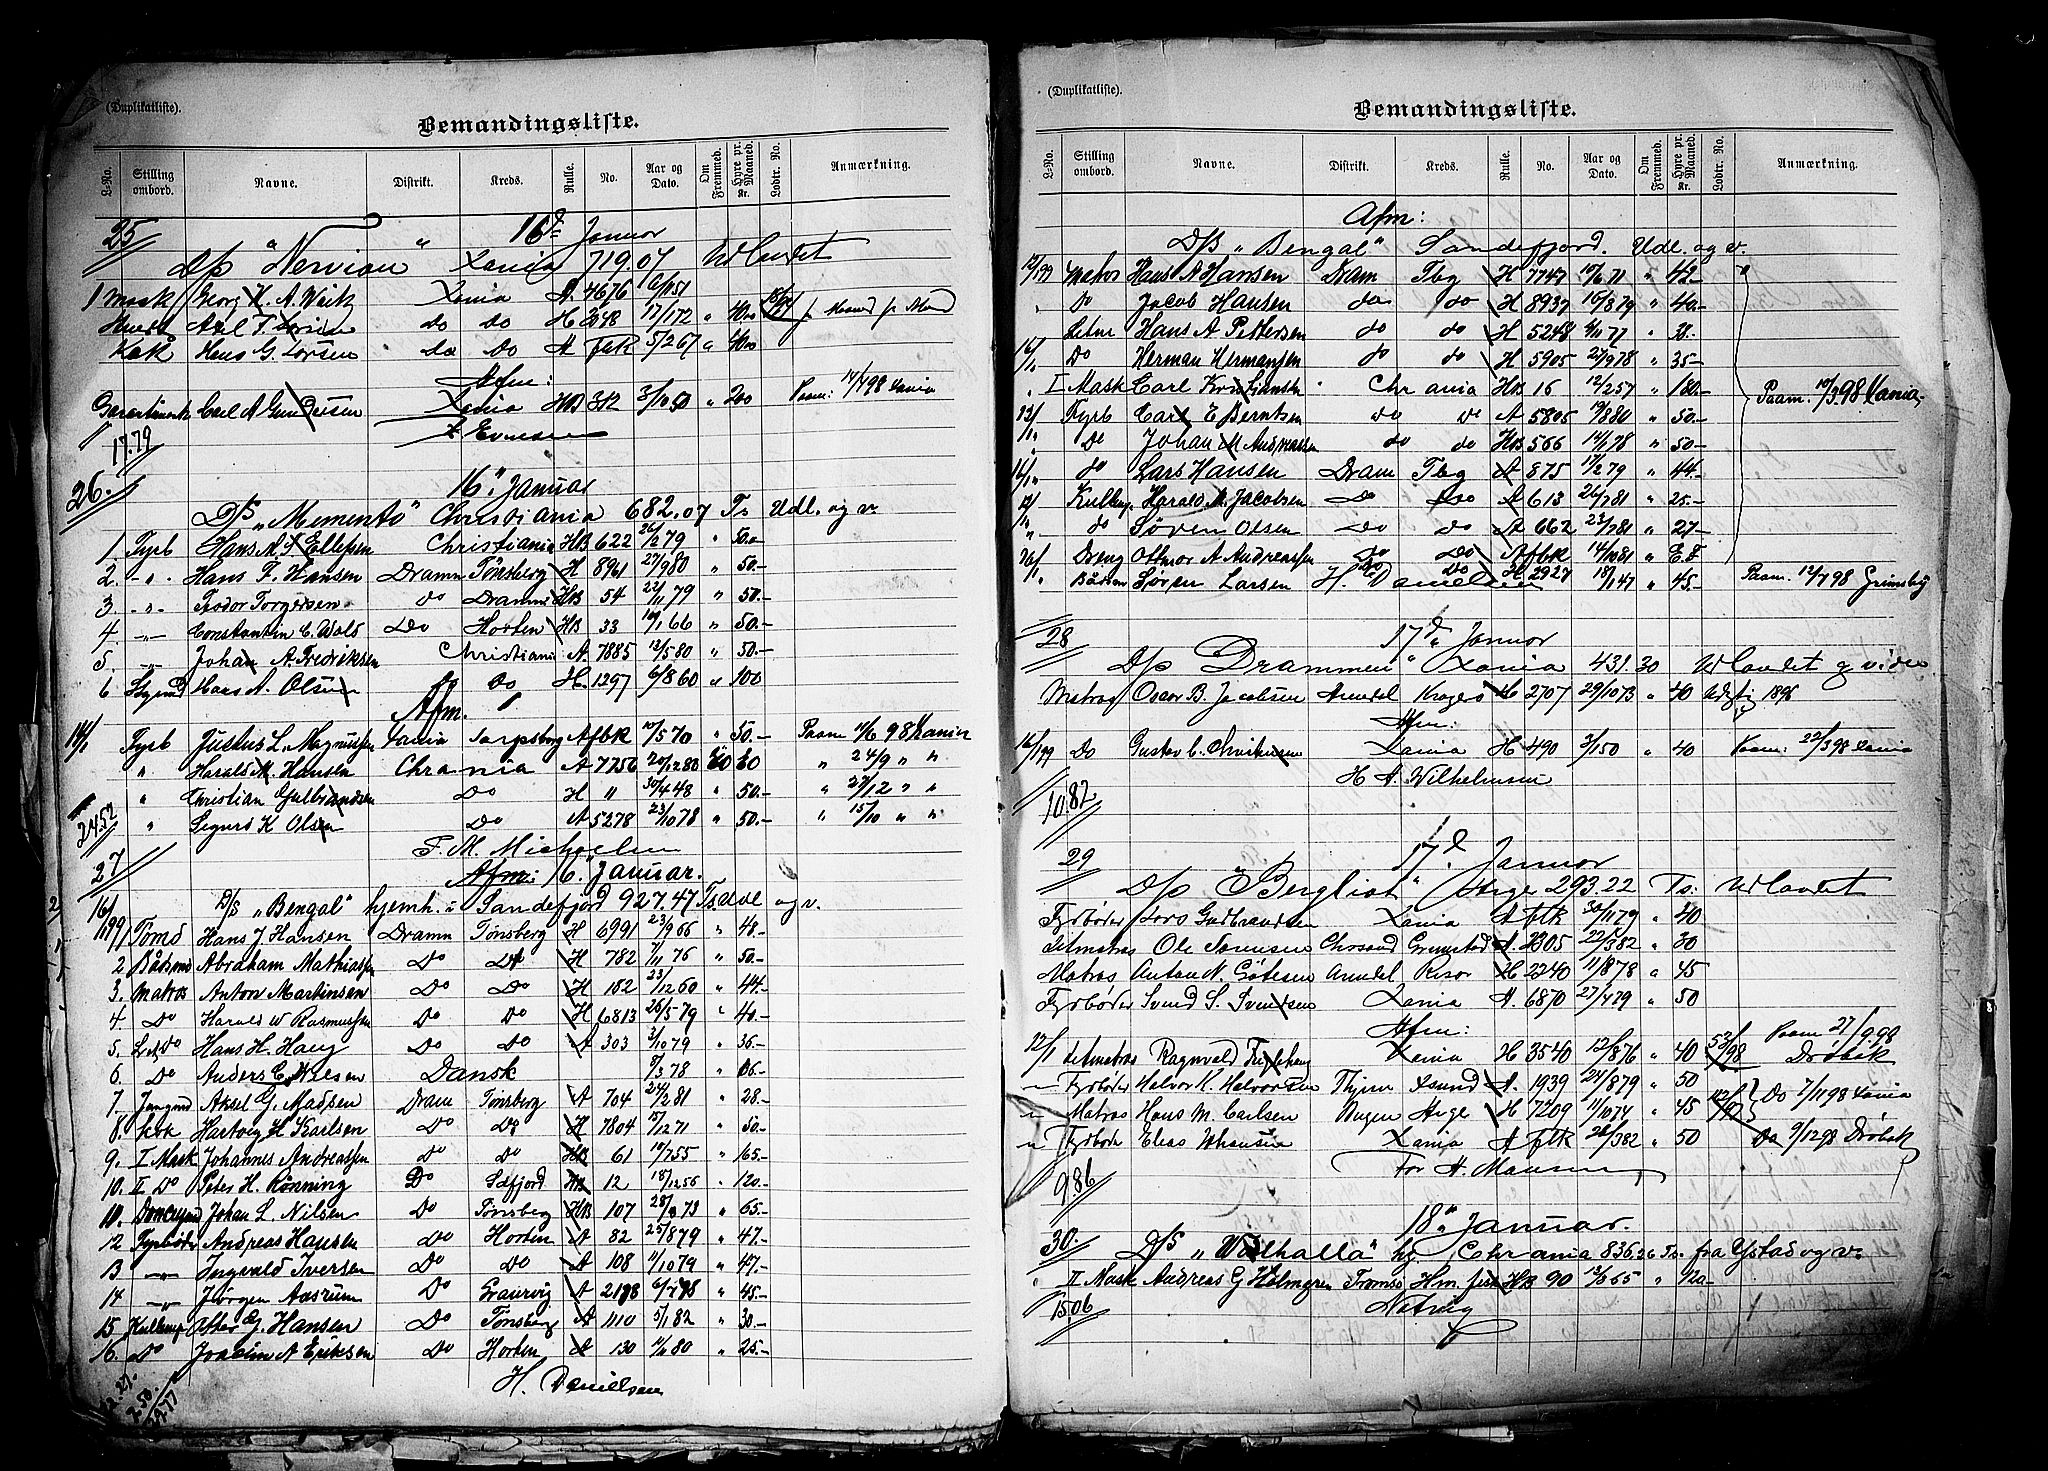 (Duplikatliste).
Bemandingsliste.
L-No. Stilling ombord. Navne. Distrikt. Kreds. Rulle. No. Aar og Dato. Om Fremmed. Hyre pr. Maaned. Kr. Lodtr. No. Anmærkning.
25 16d Januar
D/S "Nervion" Xania 719.07 Udlandet
1 Mask Georg A. Xania A. 4676
Axel do do H
Kok Hans G. do do A fbk 5/2 67 " 40.00
Afm:
Carl A Gundersen Xania HB 3/10 50 " 200 Paam: 14/7 98 Xania
17.79
26. 16" Januar
D/S "Memento" Christiania 682.07 Ts Udl. og v.
1. Fyrb Hans M. Ellefsen Christiania HB 622 26/2 79 " 50.-
2. -"- Hans F. Hansen Dramn Tønsberg H 8961 27/9 80 " 50.-
3. -"- Teodor Torgersen do Dramn HB 54 22/11 79 " 50.-
4. -"- Constantin C. Wold Do Horten HB 33 10/1 66 " 50.-
5. -"- Johan A. Fredriksen Christiania A. 7885 12/5 80 " 50.-
6 Hans A. Olsen Do H. 1297 6/8 60 " 100
Afm.
14/1 Fyrb Justus L. Magnussen Xania Sarpsborg A fbk 10/5 70 " 50.- Paam 14/6 98 Xania
" Harald M. Hansen Chr ania A 7756 20/12 80 " 24/9 " "
" Christian Gulbrandsen Do H " 30/4 48 " 50.- " 27/12 " "
" Sigurd K Olsen Do A 5278 23/10 78 " 50.- " 15/10 " "
24.52
F. M. Michaelsen
27 Afm: 16" Januar.
D/S "Bengal" hjemh. i Sandefjord 927.47 Ts. Udl og v.
16/1 99 1 Tømd Hans J. Hansen Dramn Tønsberg H 6991 23/9 66 " 48.-
2 Båtsmd Abraham Mathiassen Do Do H 782 7/11 76 " 50.-
3. Matros Anton Martinsen Do Do H 182 23/12 60 " 44.-
4. Do Harald W Rasmussen Do Do H 6813 20/5 79 " 40.-
5. Let Do Hans H. Haug Do Do A 303 3/10 79 " 36.-
6. Do Anders C. Nilsen Dansk 8/3 78 "
7 Jungmd Aksel G. Madsen Dram Tønsberg A 704 24/2 81 " 28.-
8. Kok Hartvig H Karlsen Do Do H 7804 15/12 71 " 50.-
9. I Mask Johannes Andreassen Do Do HB 61 14/7 55 " 165.-
10. II Do Peter H. Rønning Do Sdfjord HB 12 18/12 56 " 120.-
10. Donkeymd Johan L. Nilsen Do Tønsberg HB 107 28/ 73 " 65.-
12 Fyrbøder Andreas Hansen Do Horten A 82 25/8 79 " 47.-
13 -"- Ingvald Iversen Do Do A 108 11/10 79 " 47.-
14 -"- Jørgen Aasrum Do Laurvig A 2198 " 45.-
15 Kullemp G. Hansen Do Tønsberg A 1110 5/1 82 " 30.-
16. Do Joachim A Eriksen Do Horten A 130 11/1 80 " 25.-
H. Danielsen
(Duplikatliste).
Bemandingsliste.
L-No. Stilling ombord. Navne. Distrikt. Kreds. Rulle. No. Aar og Dato. Om Fremmed. Hyre pr. Maaned. Kr. Lodtr. No. Anmærkning.
Afm:
D/S "Bengal" Sandefjord. Udl. og v.
12/1 99 Matros Hans A Hansen Dram Tbg H 7747 10/6 71 " 42.-
" Do Jacob Hansen do do H 8937 15/8 79 " 40.-
Letm Hans A Pettersen do do H 5248 77 " 38.-
16/1 Do Herman Hermansen do do H 5905 27/9 78 " 35.-
" I Mask Carl Kristiansen Chr ania HB 16 12/2 57 " 180.- Paam. 10/3 98 Xania
13/1 Fyrb Carl E Berntsen do do A 5805 19/8 80 " 50.-
" Do Johan M Andreassen do do HB 566 14/1 78 " 50.-
14/1 do Lars Hansen Dram Tbg A 875 17/2 79 " 44.-
12/1 Kullemp. Harald M. Jacobsen Do Do A 613 26/7 81 " 25.-
" do Søren Olsen Do Do A 662 23/7 81 " 27.-
16/1 Dreng Othmar A Andreassen do Do A fbk 14/10 81 " E.F.
" Båtsm Søren Larsen do Do H 2927 18/1 47 " 45.- Paam. 12/7 98 Grimsby
H. Danielsen
28 17d Januar
D/S "Drammen" Xania 431.30 Udlandet og videre
Matros Oscar B. Jacobsen Arendal Kragerø H 2707 29/10 73 " 40 1898
Afm:
16/1 99 Do Gustav C. Xania H 490 3/1 50 " 40 Paam: 22/3 98 Xania
H A. Wilhelmsen
10.82
29 17d Januar
D/S "Bergliot" Hauge 293.22 Ts: Udlandet
Fyrbøder Lars Gudbrandsen Xania A fbk 30/11 79 " 40
Letmatros Ole Chrsand Grimstad A. 2305 22/3 82 " 30
Matros Anton N. Arendal Risør H 2240 11/8 78 " 45
Fyrbøder Svend S. Svendsen Xania A. 6870 27/4 79 " 50
Afm:
12/1 Letmatros Ragnvald Xania H 3540 12/8 76 " 40 53/98 Paam 27/9.98 Drøbak
" Fyrbøder Halvor K. Halvorsen Xsund A. 1939 24/8 79 " 50
" Matros Hans M. Carlsen Bergen Hauge H 7209 11/10 74 " 45 Do 7/11 98 Xania
" Fyrbøder Elias Johansen Xania A fbk 26/3 82 " 50 Do 9/12 98 Drøbak
For H. Mansen
9.86
30. 18" Januar.
D/S "Walhalla" hj. Christiania 836.26 Ts. fra Ystad og v.
" II Mask Andreas G Holmgren Tromsø Hm. fest HB 90 13/3 65 " 120.-
15.06